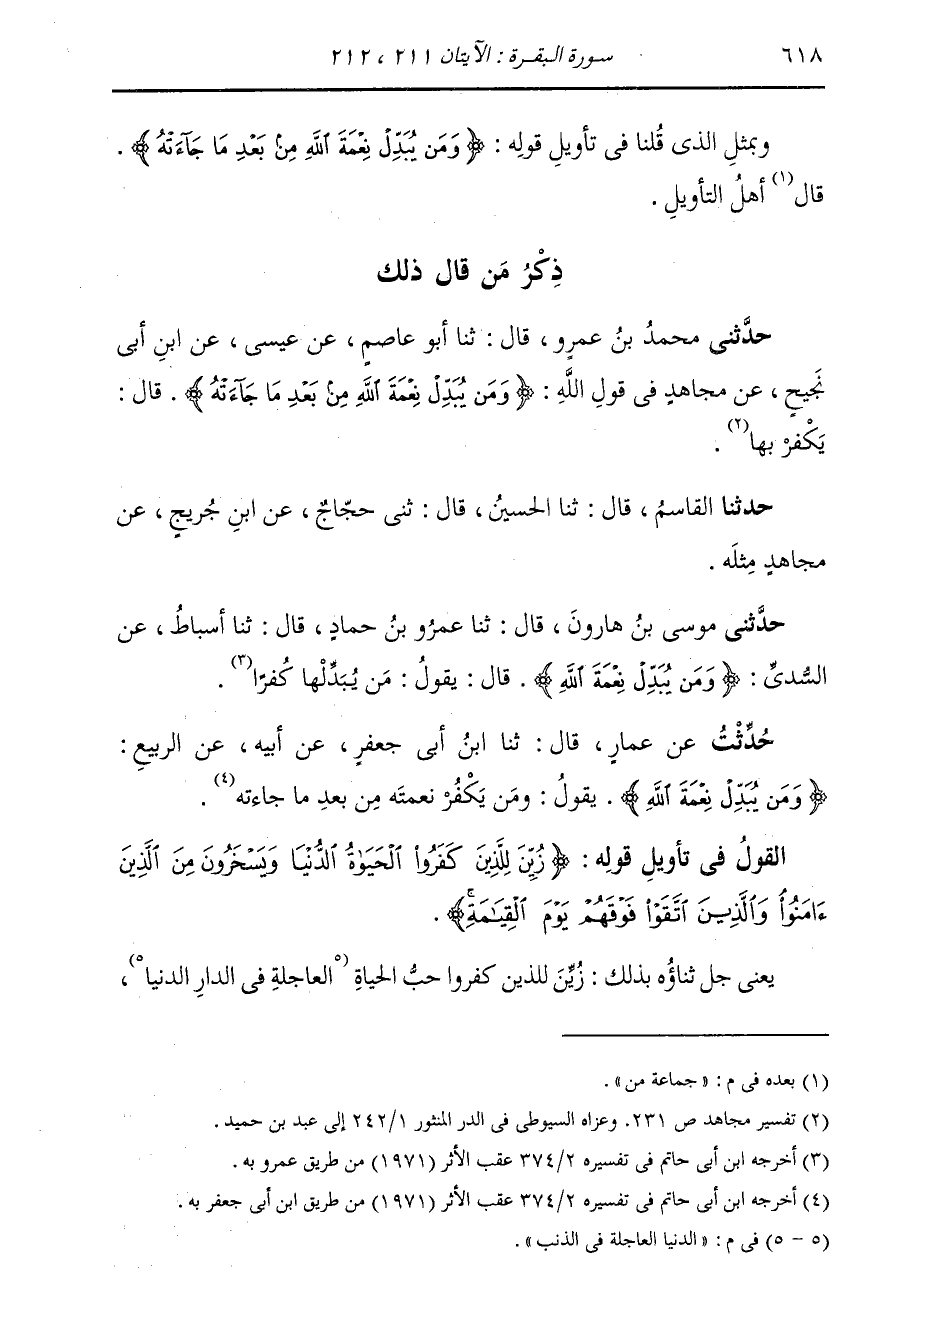 ٦١٨ سورة البقرة : الآيتان ٢١١ ، ٢١٢
وبمثلِ الذى قُلنا فى تأويلِ قولِه : ﴿ وَمَن يُبَدِّلْ نِعْمَةَ ٱللَّهِ مِنۢ بَعْدِ مَا جَآءَتْهُ ﴾ .
قال(١) أهلُ التأويلِ .
ذِكْرُ مَن قال ذلك
حدَّثنى محمدُ بنُ عمرٍو ، قال : ثنا أبو عاصمٍ ، عن عيسى ، عن ابنِ أبى
نَجيحٍ ، عن مجاهدٍ فى قولِ اللَّهِ : ﴿ وَمَن يُبَدِّلْ نِعْمَةَ ٱللَّهِ مِنۢ بَعْدِ مَا جَآءَتْهُ ﴾ . قال :
يَكْفرْ بها(٢) .
حدثنا القاسمُ ، قال : ثنا الحسينُ ، قال : ثنى حجّاجٌ ، عن ابنِ جُريجٍ ، عن
مجاهدٍ مِثلَه .
حدَّثنى موسى بنُ هارونَ ، قال : ثنا عمرُو بنُ حمادٍ ، قال : ثنا أسباطُ ، عن
السُّدىِّ : ﴿ وَمَن يُبَدِّلْ نِعْمَةَ ٱللَّهِ ﴾ . قال : يقولُ : مَن يُبَدِّلْها كُفرًا(٣) .
حُدِّثْتُ عن عمارٍ ، قال : ثنا ابنُ أبى جعفرٍ ، عن أبيه ، عن الربيعِ :
﴿ وَمَن يُبَدِّلْ نِعْمَةَ ٱللَّهِ ﴾ . يقولُ : ومَن يَكْفُرْ نعمتَه مِن بعدِ ما جاءته(٤) .
القولُ فى تأويلِ قولِه : ﴿ زُيِّنَ لِلَّذِينَ كَفَرُوا۟ ٱلْحَيَوٰةُ ٱلدُّنْيَا وَيَسْخَرُونَ مِنَ ٱلَّذِينَ
ءَامَنُوا۟ وَٱلَّذِينَ ٱتَّقَوْا۟ فَوْقَهُمْ يَوْمَ ٱلْقِيَـٰمَةِۗ﴾ .
يعنى جل ثناؤُه بذلك : زُيِّنَ للذين كفروا حبُّ الحياةِ (٥العاجلةِ فى الدارِ الدنيا٥) ،
(١) بعده فى م : « جماعة من » .
(٢) تفسير مجاهد ص ٢٣١. وعزاه السيوطى فى الدر المنثور ٢٤٢/١ إلى عبد بن حميد .
(٣) أخرجه ابن أبى حاتم فى تفسيره ٣٧٤/٢ عقب الأثر (١٩٧١) من طريق عمرو به .
(٤) أخرجه ابن أبى حاتم فى تفسيره ٣٧٤/٢ عقب الأثر (١٩٧١) من طريق ابن أبى جعفر به .
(٥ - ٥) فى م : « الدنيا العاجلة فى الذنب » .